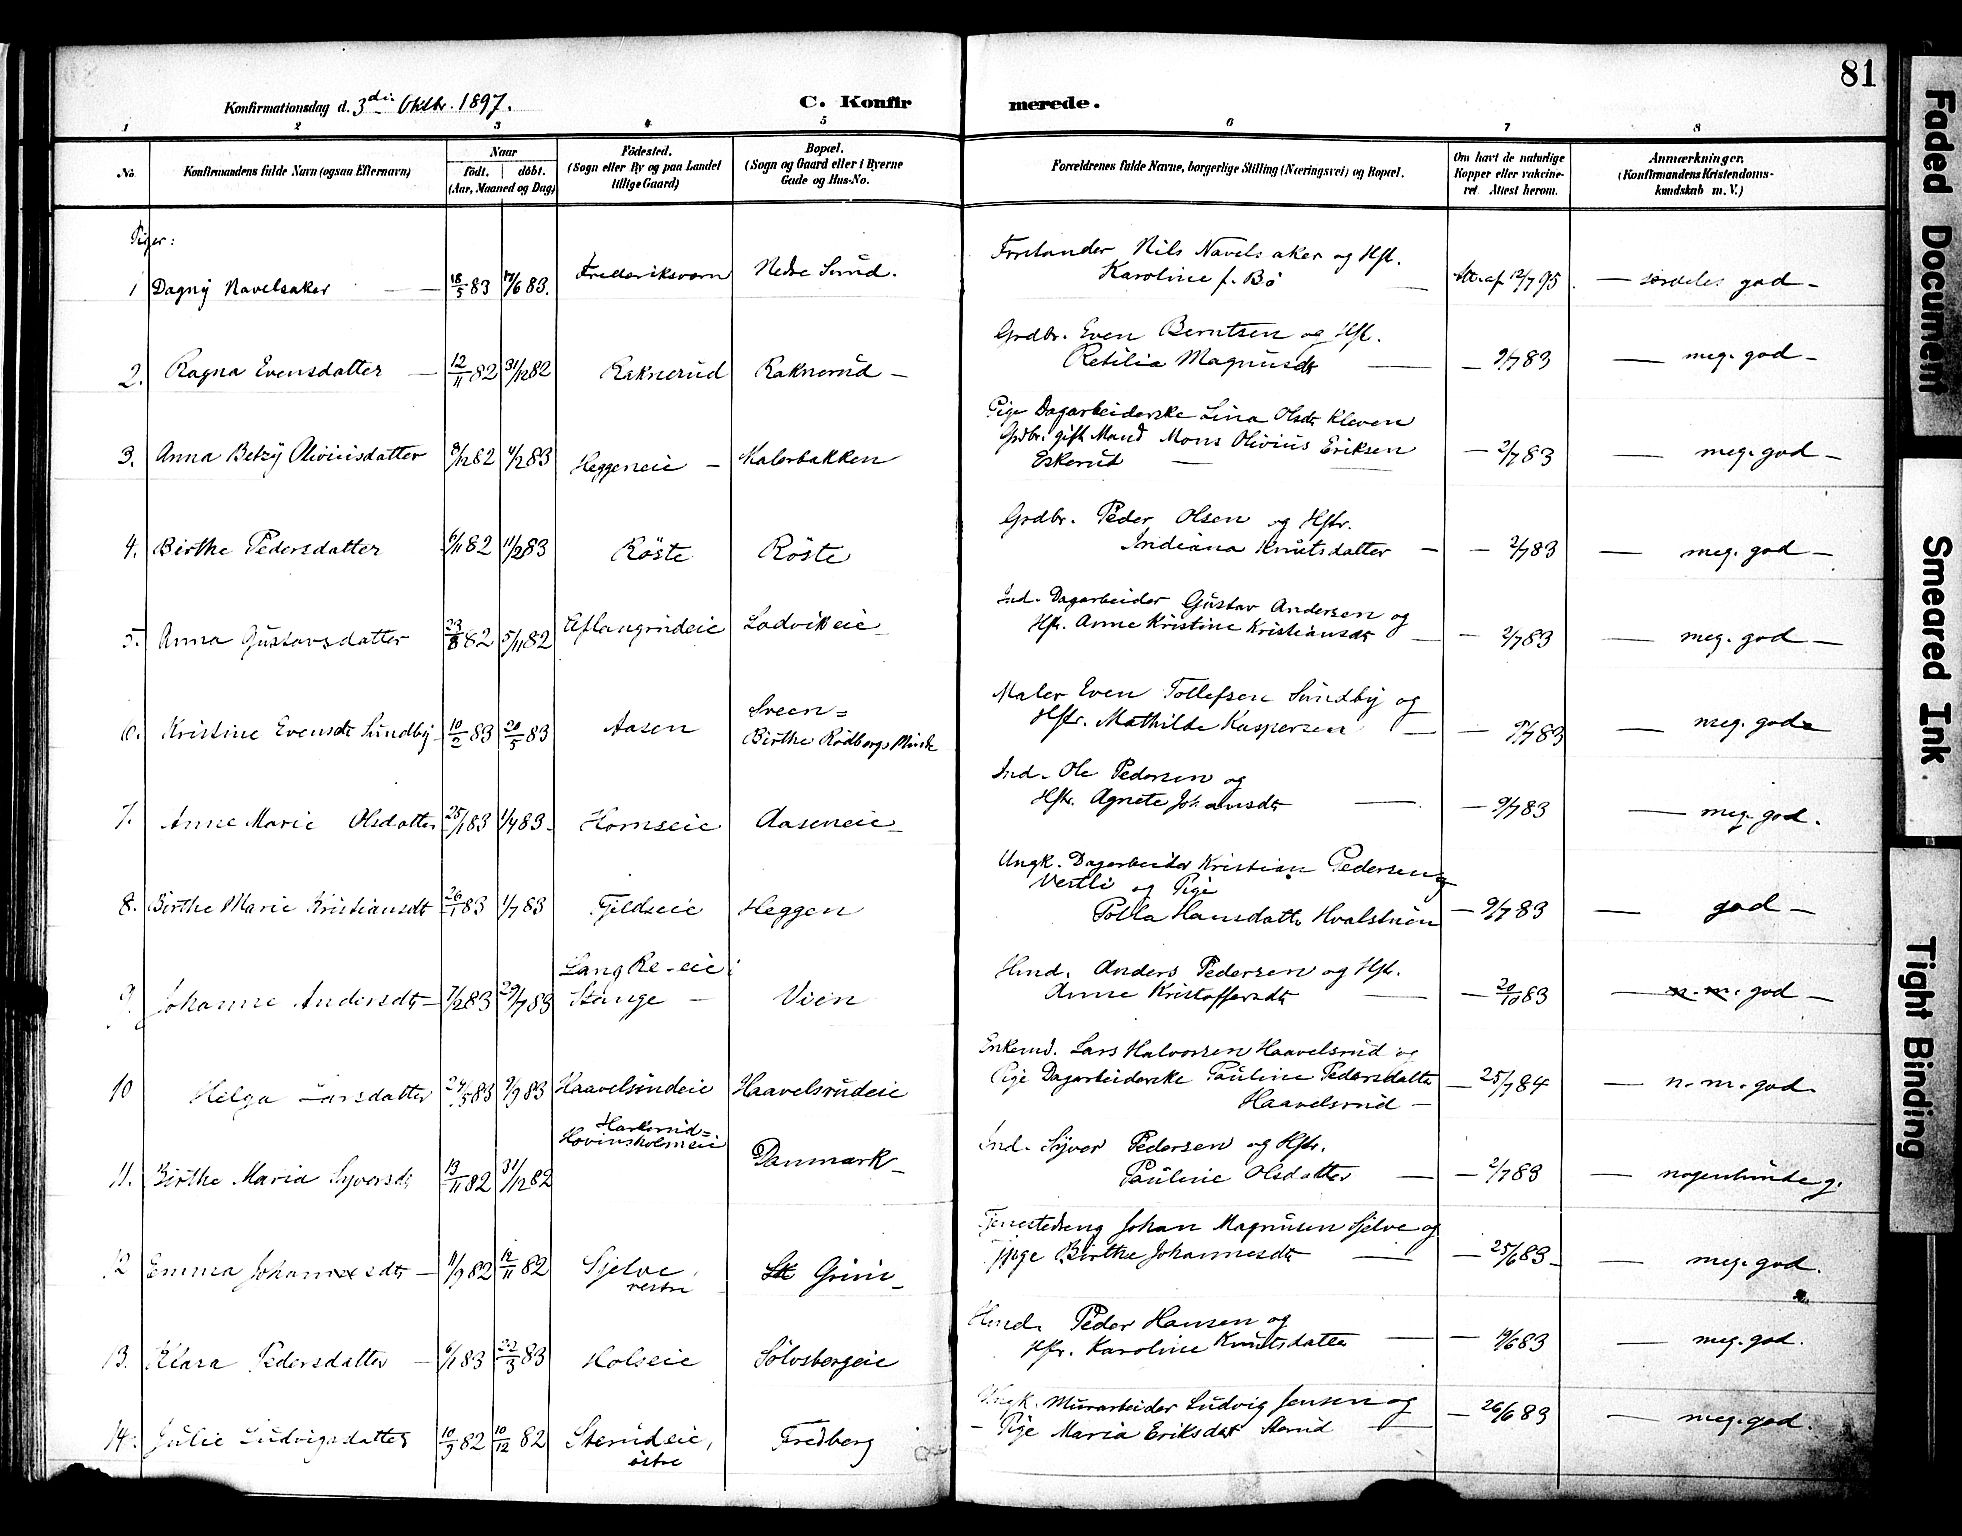 81
Konfirmationsdag d. 3die Oktbr. 1897.
C. Konfirmerede.
1 2 3 4 5 6 7 8
No.
Konfirmandens fulde Navn (ogsaa Efternavn)
Naar
født. døbt.
(Aar, Maaned og Dag)
Fødested.
(Sogn eller By og paa Landet
tillige Gaard)
Bopæl.
(Sogn og Gaard eller i Byerne
Gade og Hus-No.
Forældrenes fulde Navne, borgerlige Stilling (Næringsvei) og Bopæl.
Om havt de naturlige
Kopper eller vakcine-
ret. Attest herom.
Anmærkninger.
(Konfirmandens Kristendoms-
kundskab m. V.)
Piger:
1 Dagny Navelsaker — 18/5 83 17/6 83. Frederiksværn Nedre Sund. Forstander Nils Navelsaker og Hst.
Karoline f. Bö — Att. af 12/7 95. — særdeles god —
2. Ragna Evensdatter — 12/11 82 31/12 82 Raknerud Raknerud — Grdbr. Even Berntsen og Hst.
Retilia Magnusdt — — 9/7 83 — meg. god —
3. Anna Betzy Oliviusdatter 8/12 82 4/2 83 Heggeneie — Kalerbakken Pige Dagarbeiderske Lina Olsdt Kleven
Grdbr. gift Mand Mons Olivius Eriksen
Eskerud — — 2/7 83 — meg. god —
4. Birthe Pedersdatter 9/11 82 11/2 83 Röste Röste Grdbr. Peder Olsen og Hstr.
Indiana Knutsdatter — — 2/7 83 — meg. god —
5. Anna Gustavsdatter 23/8 82 5/11 82 Aslangrudeie Lodvikeie — Ind. Dagarbeider Gustav Andersen og
Hstr. Anne Kristine Kristiansdt — — 2/7 83 — meg. god —
6. Kristine Evensdt Sundby 10/2 83 20/5 83 Aasen Sveen=
Birthe Rödbergs Minde Maler Even Tollefsen Sundby og
Hstr. Mathilde Kaspersen — — 9/7 83 — meg. god
7. Anne Marie Olsdatter 25/1 83 1/7 83. Hornseie Aaseneie — Ind. Ole Pedersen og
Hstr. Agnete Johansdt — — 9/7 83 — meg. god.
8. Birthe Marie Kristiansdt 26/1 83 1/7 83 Fjeldseie Heggen Ungk. Dagarbeider Kristian Pedersen
Vestli og Pige
Polla Hansdatter Hvalstuen — 9/7 83 — god —
9. Johanne Andersdt — 7/2 83 29/7 83 Langke-eie i
Stange — Vien Hmd. Anders Pedersen og Hst.
Anne Kristoffersdt — — 20/10 83 — n. m. god —
10 Helga Larsdatter 27/5 83 9/9 83 Haavelsrudeie Haavelsrudeie Enkemd. Lars Halvorsen Haavelsrud og
Pige Dagarbeiderske Pauline Pedersdatter
Haavelsrud — — 25/7 84 — n. m. god
11. Birthe Maria Syversdt 13/11 82 31/12 82 Harkerud=
Hovinsholmeie Danmark — Ind. Syver Pedersen og Hstr.
Pauline Olsdatter — — 2/7 83 — nogenlunde g.
12 Emma Johannesdt — 11/9 82 12/11 82 Sjelve
vestre St. Grini — Tjenestedreng Johan Magnusen Sjelve og
Pige Birthe Johannesdt — — 25/6 83 — — meg. god.
13. Klara Pedersdatter — 6/1 83 22/3 83 Holseie Sölvsbergeie Hmd. Peder Hansen og
Hstr. Karoline Knutsdatter — — 19/6 83 — meg. god.
14. Julie Ludvigsdatter 10/9 82 10/12 82 Sterudeie,
östre Fredberg Ungk. Murarbeider Ludvig Jensen og
— Pige Maria Eriksdat Sterud — — 26/6 83 — meg. god.
Faded Document
Smeared Ink
Tight Binding